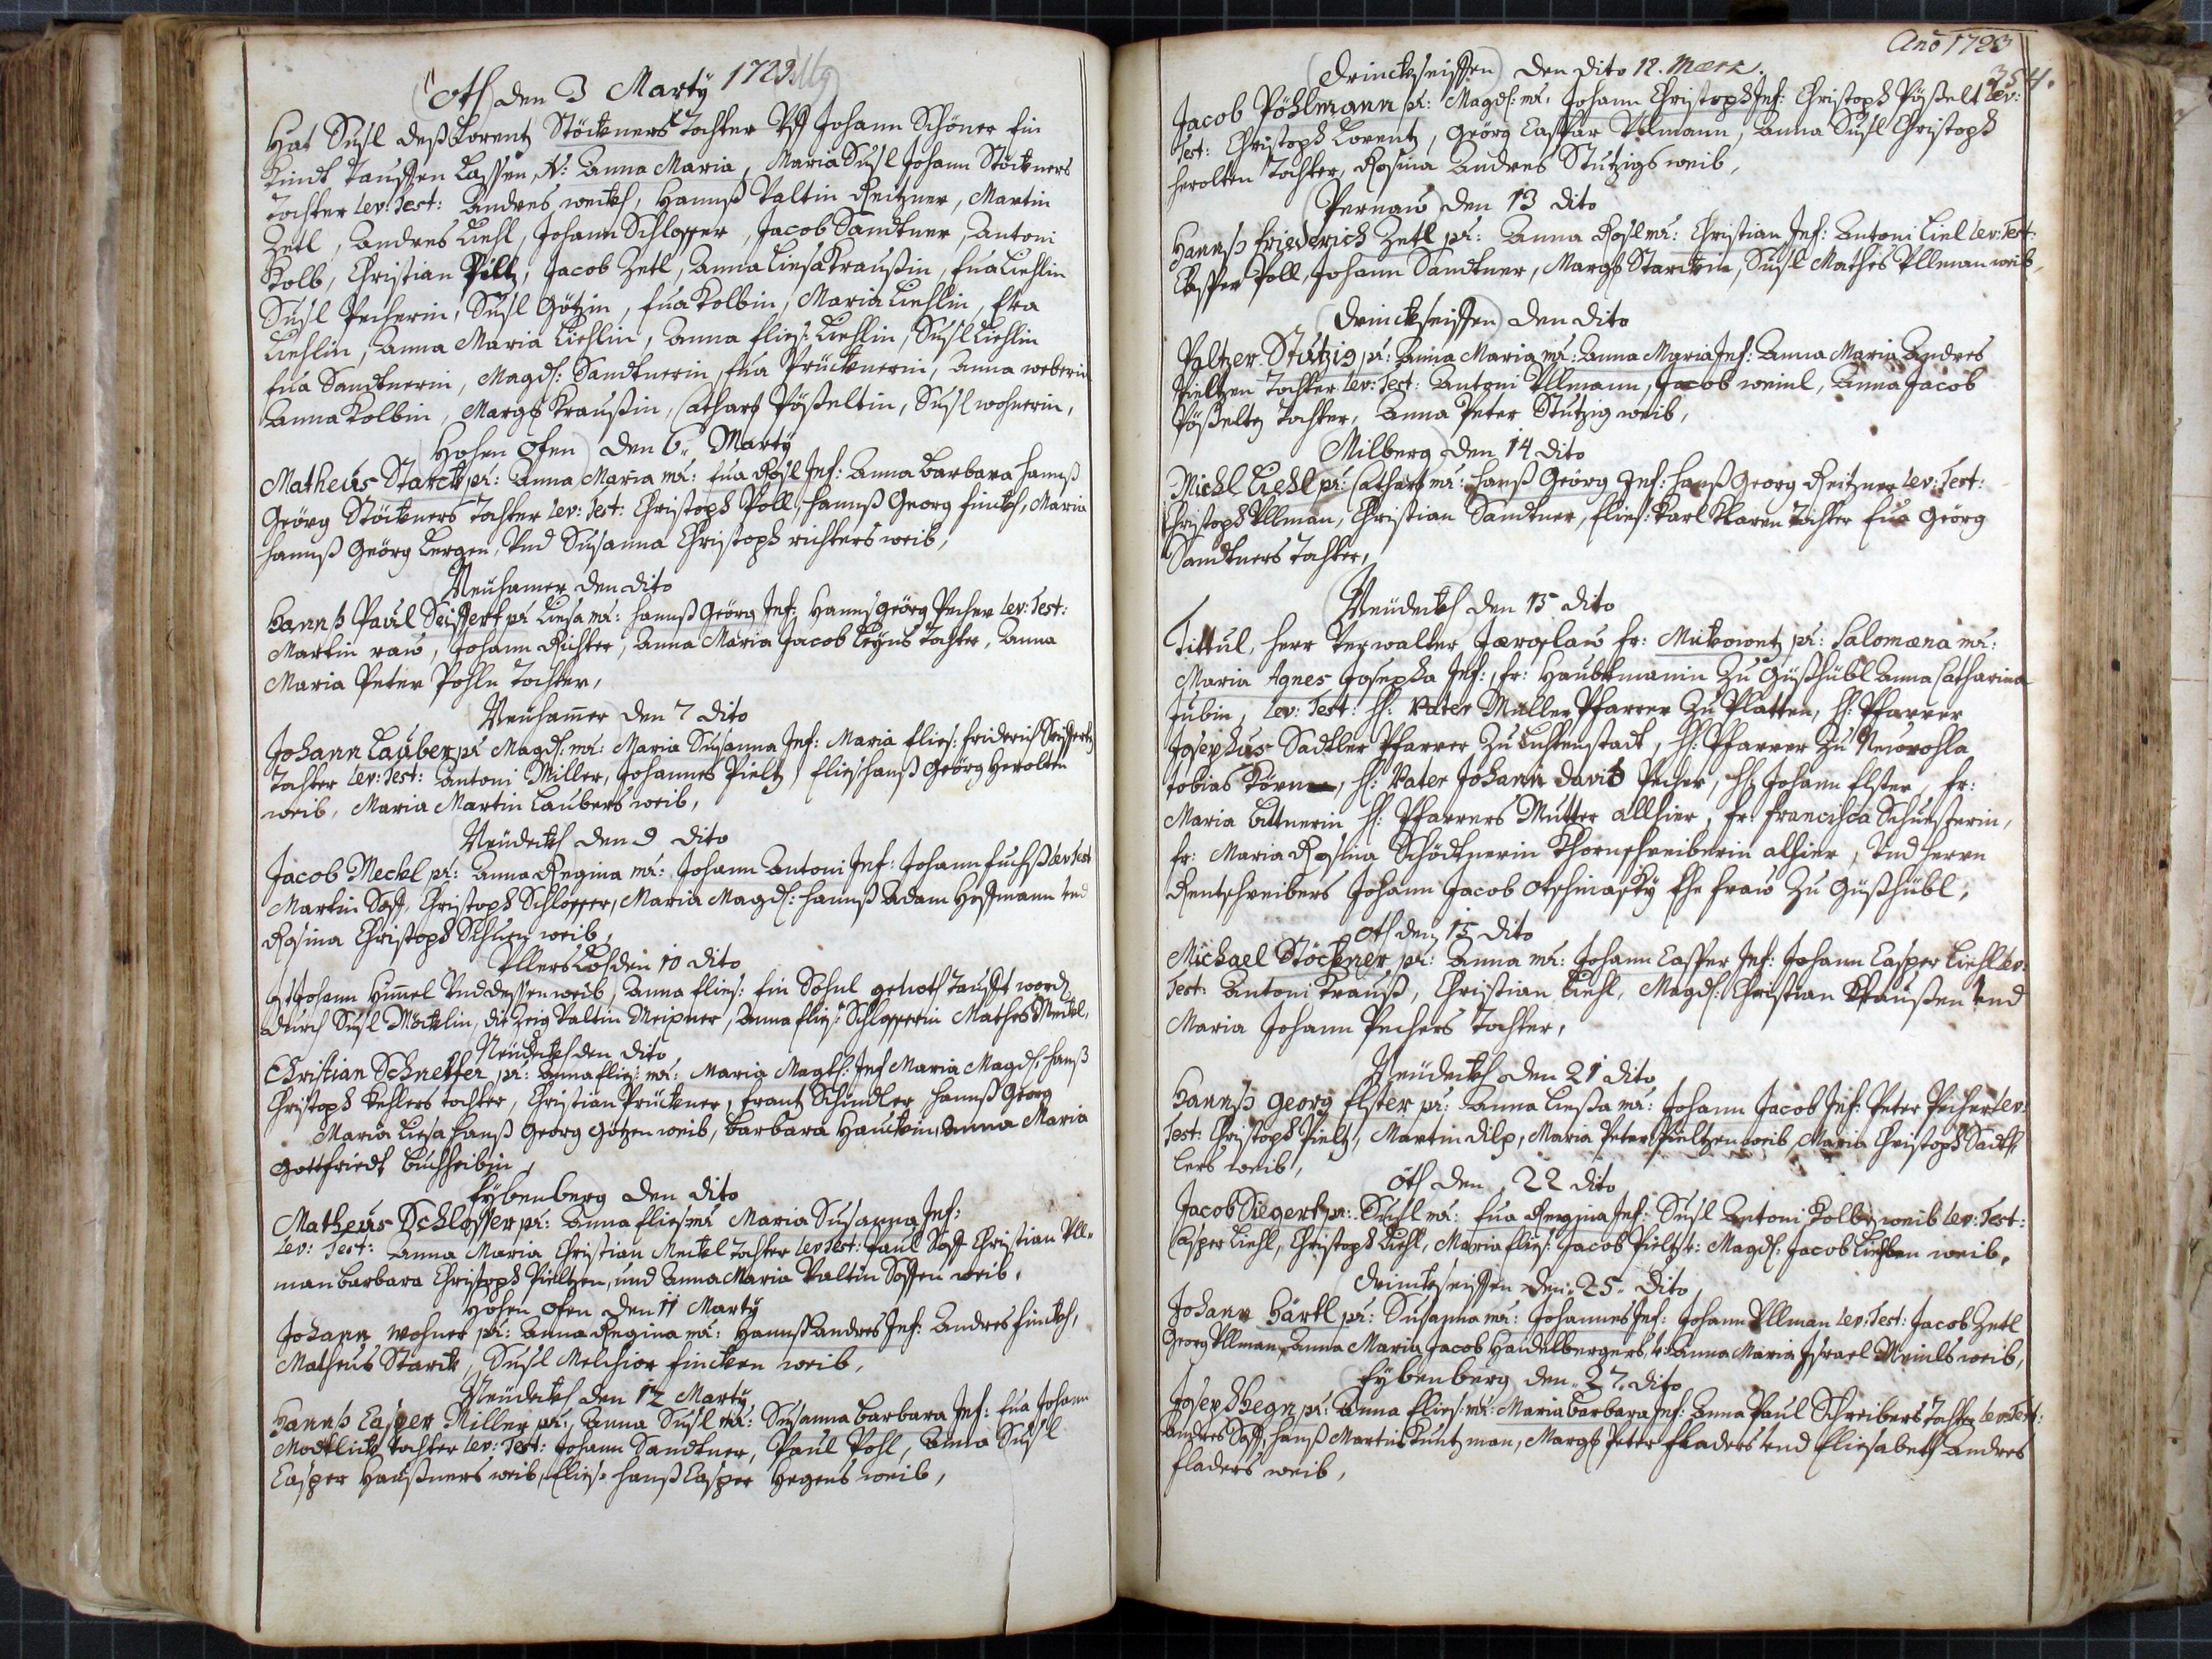 Oth den 3 Marty 1723
Hat Susl deß Lorentz Stöckners Tochter Vff Johann Schöner Ein
Kindt Tauffen Lassen, N: Anna Maria, Maria Susl Johann Stöckners
Tochter Lev: Test: Andres, Hannß Valtin Reitzner, Martin
Zetl, Andres Liehl, Johann Schlosser, Jacob Sandtner, Antoni
Kolb, Christian Piltz, Jacob Zetl, Anna Liesa Kraußin, Eua Liehlin
Susl Pecherin, Susl Götzin, Eua Kolbin, Maria Liehlin, Eva
Liehlin, Anna Maria Liehlin, Anna Elies: Liehlin, Susl Liehlin
Eua Sandtnerin, Magdl: Sandtnerin, Eua Prücknerin, Anna weberin
Anna Kolbin, Margl Kraußin, Catharl Pößeltin, Susl wohnerin,
Hohen Ofen den 6 Marty
Matheus Starck pr: Anna Maria mr: Eua Rosl Inf: Anna Barbara Hannß
Geörg Stöckners Tochter Lev: Test: Christoph Poll, Hannß Georg Finckh, Maria
Hannß Geörg Lergen, Vnd Susanna Christoph richters weib,
Neuhamer den dito
Hannß Paul Seiffert pr Liesa mr: Hannß Geörg Inf: Hannß Geörg Pecher Lev: Test:
Martin rau, Johann Richter, Anna Maria Jacob Tochter, Anna
Maria Peter Pohln Tochter,
Neuhamer den 7 dito
Johann Lauber pr Magdl: mr: Maria Susanna Inf: Maria Elies: Friderich Seiffertz
Tochter Lev: Test: Antoni Miller, Johannes Pieltz, Elies Hanß Geörg Herolten
weib, Maria Martin Laubers weib,
Neudeckh den 9 dito
Jacob Meckl pr: Anna Regina mr: Johann Antoni Inf: Johann Fuchß Lev Test
Martin Soff, Christoph Schlosser, Maria Magdl: Hannß Adam Hoffmann Vnd
Rosina Christoph weib,
Vllersloh den 10 dito
ist Johann Himel Vnd dessen weib, Anna Elies: Ein Söhnl getaufft word
durch Susl Möcklin, die Zeig Valtin Meixner, Anna Elies: Schlosserin Mathes Meckl,
Neudeckh den dito
Christian Schneffer pr: Anna Elies: mr: Maria Magdl: Inf Maria Magdl: Hanß
Christoph Kehlers tochter, Christian Prückner, Frantz Schindler, Hannß Georg
Maria Liesa Hanß Georg Götzen weib, Barbara, Anna Maria
Gottfriedt
Eybenberg den dito
Matheus Schlosser pr: Anna Elies mr Maria Susanna Inf:
Lev: Test: Anna Maria Christian Meckel tochter Lev Test: Paul Soff Christian Vll-
man Barbara Christoph Pieltzen, und Anna Maria Valtin Soffen weib,
Hohen ofen den 11 Marty
Johann wohner pr: Anna Regina mr: Hannß Andres Inf: Andres Finckh,
Matheus Starck, Susl Melchior Fincken weib,
Neudeckh den 12 Marty
Hannß Casper Miller pr: Anna Susl mr: Susanna Barbara Inf: Eua Johann
Tochter Lev: Test: Johann Sandtner, Paul Pohl, Anna Susl
Casper Haußners weib, Elies: Hanß Casper Hegens weib,
Año 1723
354.
Drinckseiffen den dito 12. Mertz.
Jacob Pöhlmann pr: Magdl: mr: Johann Christoph Inf: Christoph Pößelt Lev:
Test: Christoph Lorentz, Geörg Caspar Vlmann, Anna Susl Christoph
herolten Tochter, Rosina Andres Stutzigs weib,
Pernau den 13 dito
Hannß Friederich Zetl pr: Anna Rosl mr: Christian Inf: Antoni Liel Lev: Test:
Casper Poll, Johann Sandtner, Margl Starckin, Susl Mathes Vllman weib,
Drinckseiffen den dito
Paltzer Stutzig pr: Anna Maria mr: Anna Maria Inf: Anna Maria Andres
Pieltzen Tochter Lev: Test: Antoni Vllmann, Jacob weinl, Anna Jacob
Pößelts Tochter, Anna Peter Stutzig weib,
Milberg den 14 dito
Michl Liehl pr: Catharl mr: Hanß Geörg Inf: Hanß Georg Reitzner Lev: Test:
Christoph Vllman, Christian Sandtner, Elies: Karl Tochter Eua Geörg
Sandtners Tochter,
Neudeckh den 15 dito
Tittul, Herr Verwalter Jaroslau Fr: Mickowetz pr: Salomæna mr:
Maria Agnes Josepha Inf:, Fr: Haubtmanin Zu Güßhübl Anna Catharina
Lev: Test: H: Pater Müller Pfarrer Zu Platten, H: Pfarrer
Josephus Sadtler Pfarrer Zu Lichtenstadt, H: Pfarrer Zu Neurohla
tobias Korn, H: Pater Johann David Pecher, H: Johann Elster, Fr:
Maria Bittnerin H: Pfarrers Mutter allhier, Fr: Francisca Schusterin,
Fr: Maria Rosina Schödtnerin Khornschreiberin alhier, Vnd Herrn
Rentschreibers Johann Jacob Otschinasky Ehe Frau Zu Güßhübl,
Oth den 15 dito
Michael Stöckner pr: Anna mr: Johann Casper Inf: Johann Casper Liehl Lev:
Test: Antoni Krauß, Christian Liehl, Magdl: Christian Kraußen Vnd
Maria Johann Pechers Tochter,
Neudeckh den 21 dito
Hannß Georg Elster pr: Anna Liesa mr: Johann Jacob Inf: Peter Pecher Lev:
Test: Christoph Pieltz, Martin, Maria Peter Pieltzen weib, Maria Christoph Sadt-
lers weib,
Oth den 22 dito
Jacob Siegert pr: Sußl mr: Eua Regina Inf: Susl Antoni Kolbn weib Lev: Test:
Casper Liehl, Christoph Liehl, Maria Elies: Jacob Pieltz v: Magdl: Jacob Liehlen weib,
Drinckseiffen den 25 dito
Johann Härtl pr: Susanna mr: Johannes Inf: Johann Vllman Lev: Test: Jacob Zetl
Georg Vllman, Anna Maria Jacob Haidelbergers, v: Anna Maria Israel Meinls weib,
Eybenberg den 27. dito
Joseph Hegn pr: Anna Elies: mr: Maria Barbara Inf: Anna Paul Schreibers Tochter Lev: Test:
Andres Soff, Hanß Martin Kuntzman, Margl Peter Fladers Vnd Eliesabeth Andres
Fladers weib,